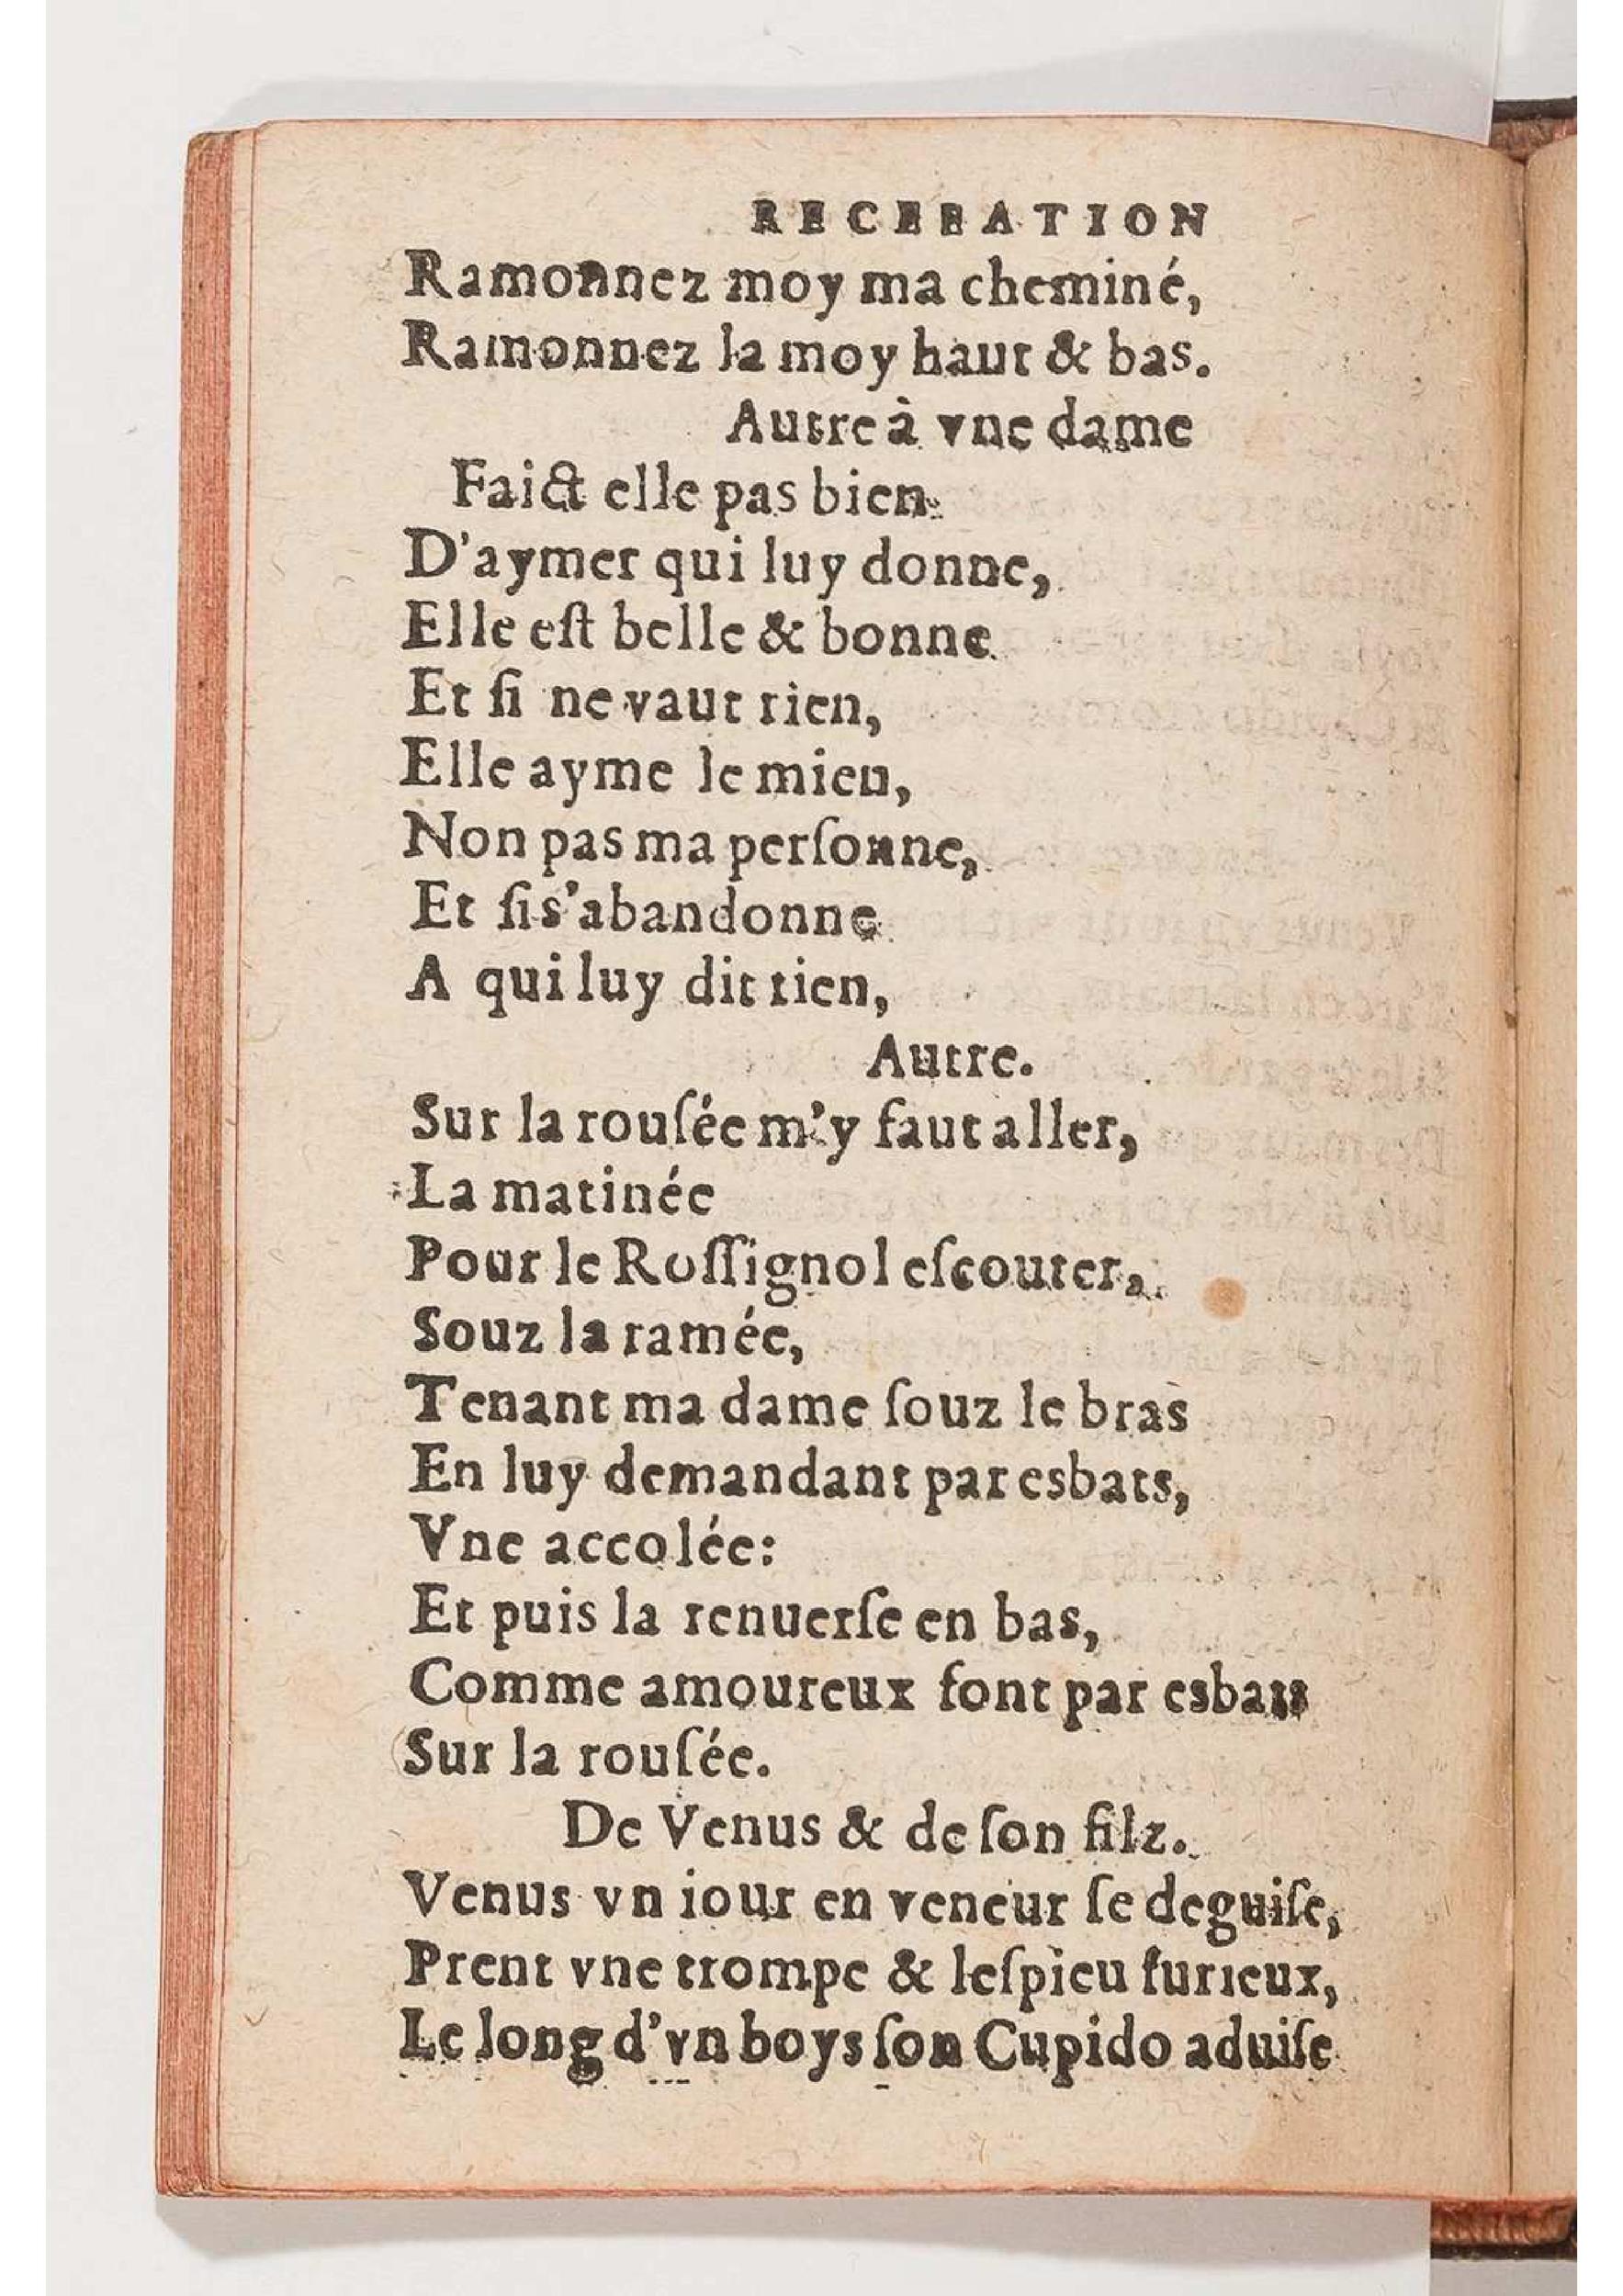 RECREATION
Ramonnez moy ma cheminé,
Ramonnez la moy haut & bas.
Autre à vne dame
Faict elle pas bien
D'aymer qui luy donne,
Elle eſt belle & bonne
Et ſi ne vaut rien,
Elle ayme le mien,
Non pas ma perſonne,
Et ſi s'abandonne
A qui luy dit tien,
Autre.
Sur la rouſée m'y faut aller,
La matinée
Pour le Roſſignol eſcouter,
Souz la ramée,
Tenant ma dame ſouz le bras
En luy demandant par esbats,
Vne accolée:
Et puis la renuerſe en bas,
Comme amoureux font par esbats
Sur la rouſée.
De Venus & de ſon filz.
Venus vn iour en veneur ſe deguiſe,
Prent vne trompe & leſpieu furieux,
Le long d'vn boys ſon Cupido aduiſe